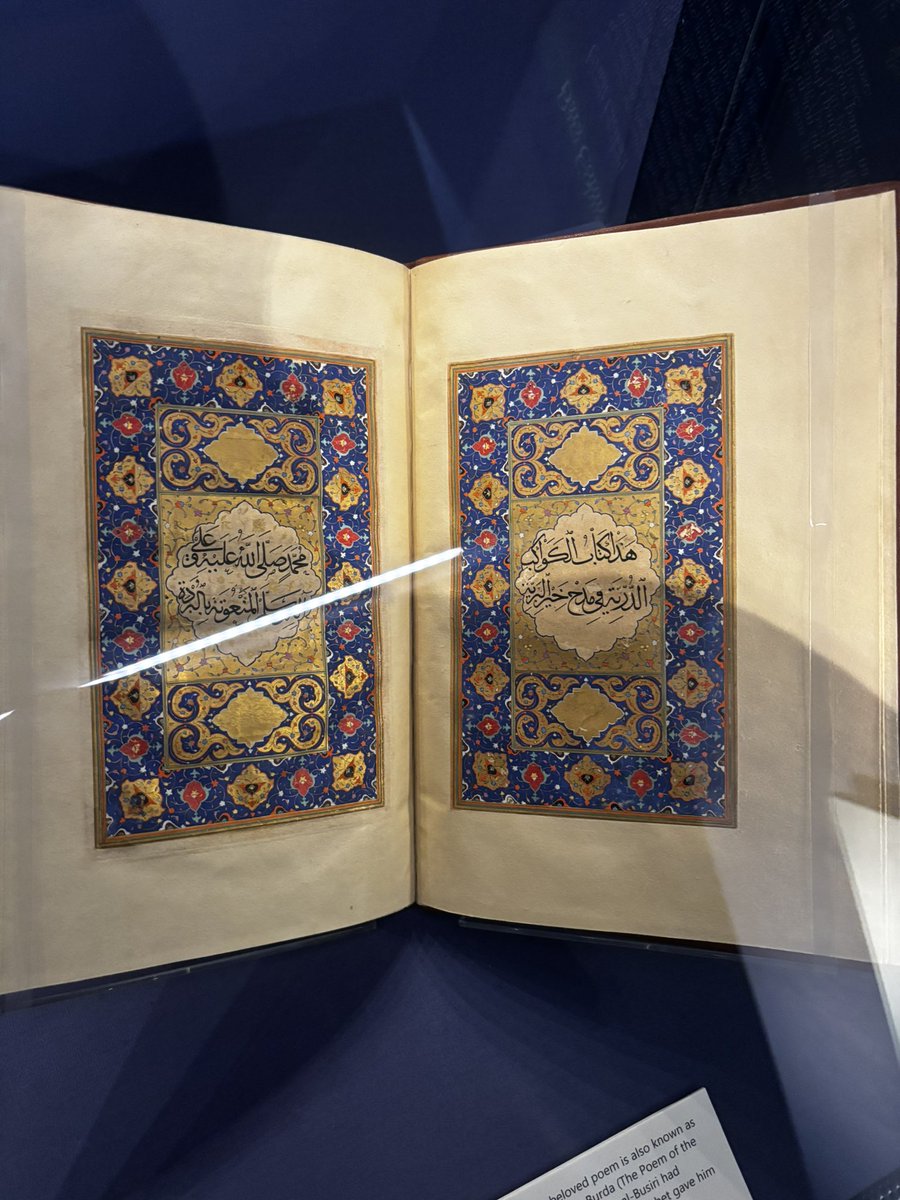 هذا كتاب الكواكب
الدرية في مدح خير البرية
محمد صلى الله عليه وعلى
المنعوتة بالبردة
beloved poem is also known as
Burda (The Poem of the
al-Busiri had
het gave him